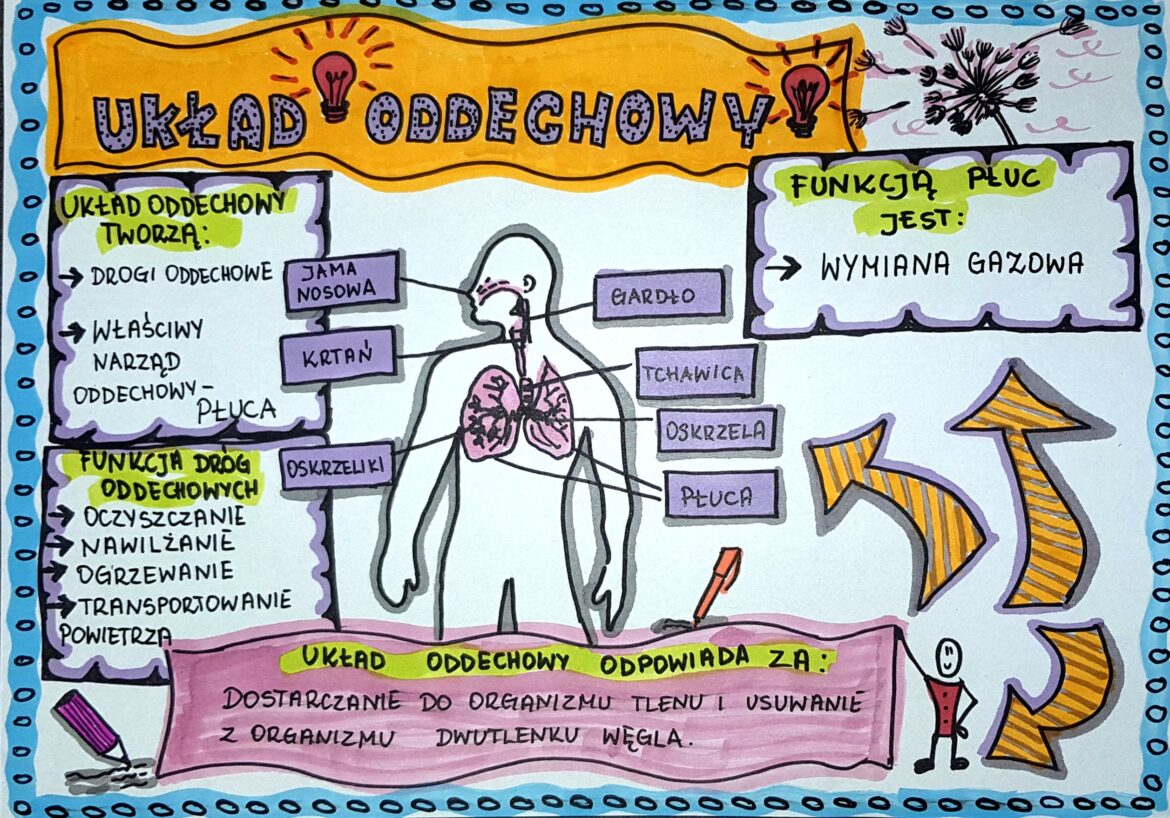 UKŁAD ODDECHOWY
UKŁAD ODDECHOWY
TWORZĄ:
→ DROGI ODDECHOWE
→ WŁAŚCIWY
NARZĄD
ODDECHOWY-
PŁUCA
FUNKCJA DRÓG
ODDECHOWYCH
→ OCZYSZCZANIE
→ NAWILŻANIE
→ OGRZEWANIE
→ TRANSPORTOWANIE
POWIETRZA
JAMA
NOSOWA
KRTAŃ
OSKRZELIKI
GARDŁO
TCHAWICA
OSKRZELA
PŁUCA
FUNKCJĄ PŁUC
JEST:
→ WYMIANA GAZOWA
UKŁAD ODDECHOWY ODPOWIADA ZA:
DOSTARCZANIE DO ORGANIZMU TLENU I USUWANIE
Z ORGANIZMU DWUTLENKU WĘGLA.